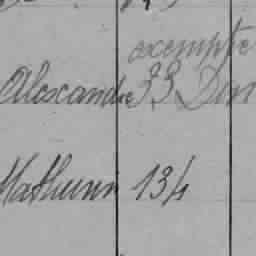 exempte
Alexandre 33 Dom
Mathurin 134